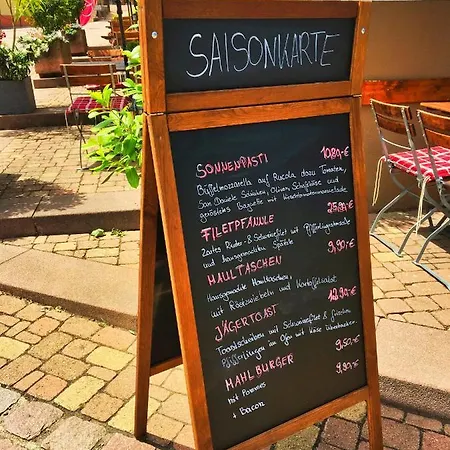 SAISONKARTE
SONNENPASTI 10,80.-€
Büffelmozzarella auf Rucola dazu Tomaten,
San Daniele Schinken, Oliven, Schafskäse und
geröstetes Baguette mit
FILETPFANNLE 25,80.-€
Zartes Rinder- & Schweinefilet mit Pfifferlingrahmsoße
und hausgemachten Spätzle
MAULTASCHEN 9,90.-€
Hausgemachte Maultaschen,
mit Röstzwiebeln und Kartoffelsalat
JÄGERTOAST 12,90.-€
Toastscheiben mit Schweinefilet & frischen
Pfifferlingen im Ofen mit Käse überbacken.
MAHLBURGER 9,50.-
mit Pommes 9,90.-
+ Bacon